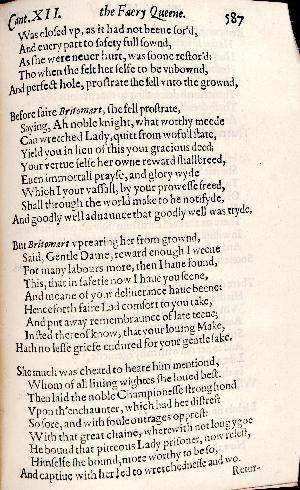 Cant. XII. the Faery Queene. 587
Was closed vp, as it had not beene sor'd,
And euery part to safety full sownd,
As she were neuer hurt, was soone restor'd:
Tho when she felt her selfe to be vnbownd,
And perfect hole, prostrate she fell vnto the grownd,
Before faire Britomart, she fell prostrate,
Saying, Ah noble knight, what worthy meede
Can wretched Lady, quitt from wofull state,
Yield you in lieu of this your gracious deed?
Your vertue selfe her owne reward shall breed,
Euen immortall prayse, and glory wyde
Which I your vassall, by your prowesse freed,
Shall through the world make to be notifyde,
And goodly well aduaunce that goodly well was tryde.
But Britomart vprearing her from grownd,
Said, Gentle Dame, reward enough I weene
For many labours more, then I haue found,
This, that in safetie now I haue you seene,
And meane of your deliuerance haue beene:
Henceforth faire Lady comfort to you take,
And put away remembraunce of late teene;
Insted thereof know, that your louing Make,
Hath no lesse griefe endured for your gentle sake.
She much was cheard to heare him mentiond,
Whom of all liuing wightes she loued best.
Then laid the noble Championesse strong hond
Vpon th'enchaunter, which had her distrest
So sore, and with foule outrages opprest:
With that great chaine, wherewith not long ygoe
He bound that pitteous Lady prisoner, now relest,
Himselfe she bound, more worthy to be so,
And captiue with her led to wretchednesse and wo.
Retur-